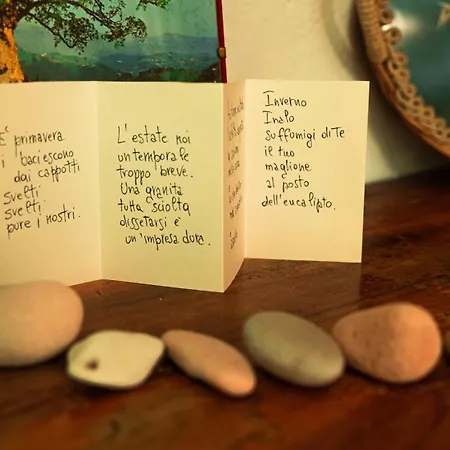 E' primavera
i baci escono
dai cappotti
svelti
svelti
pure i nostri.
L'estate noi
un temporale
troppo breve.
Una granita
tutta sciolta
dissetarsi è
un'impresa dura.
Inverno
Inalo
suffumigi di Te
il tuo
maglione
al posto
dell'eucalipto.